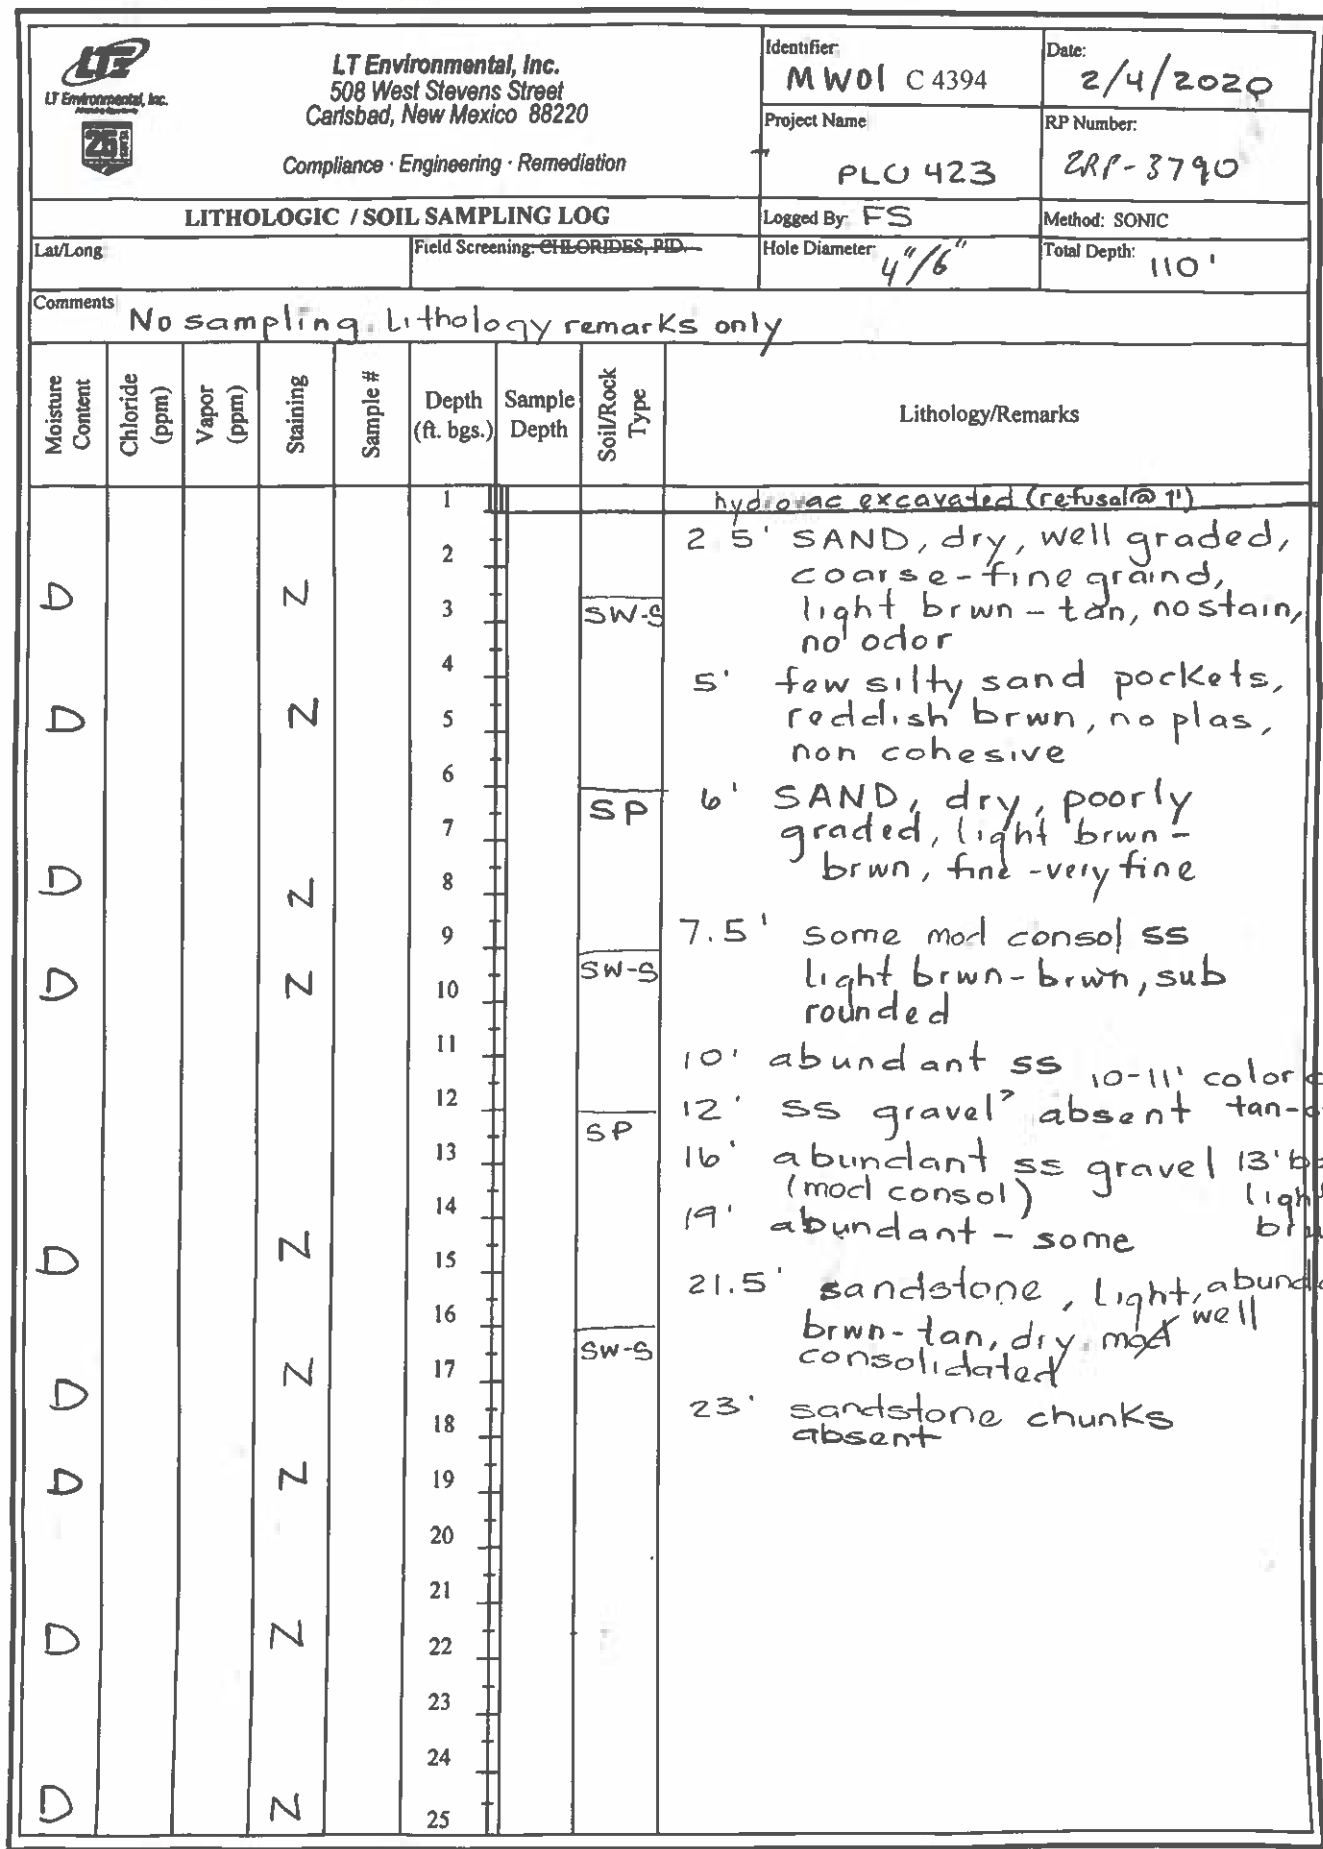 LTE
LT Environmental, Inc.
LT Environmental, Inc.
508 West Stevens Street
Carlsbad, New Mexico 88220
Compliance · Engineering · Remediation
Identifier
MW01 C 4394
Date:
2/4/2020
Project Name
PLU 423
RP Number:
2RP-3790
LITHOLOGIC / SOIL SAMPLING LOG
Logged By: FS
Method: SONIC
Lat/Long
Field Screening: CHLORIDES, PID
Hole Diameter: 4"/6"
Total Depth: 110'
Comments
No sampling. Lithology remarks only
Moisture Content
Chloride (ppm)
Vapor (ppm)
Staining
Sample #
Depth (ft. bgs.)
Sample Depth
Soil/Rock Type
Lithology/Remarks
1
hydrovac excavated (refusal@ 1')
2
2 5' SAND, dry, well graded,
coarse-fine graind,
D N 3 SW-S light brwn - tan, no stain,
no odor
4
5' few silty sand pockets,
D N 5 reddish brwn, no plas,
non cohesive
6
6' SAND, dry, poorly
SP
7 graded, light brwn -
brwn, fine -very fine
D N 8
9
7.5' some mod consol ss
D N 10 SW-S light brwn-brwn, sub
rounded
11
10' abundant ss 10-11' color
12
12' ss gravel absent tan-
SP
13
16' abundant ss gravel 13'
(mod consol)
14
19' abundant - some
D N 15
21.5' sandstone, light,
16
brwn-tan, dry, mod well
SW-S
consolidated
D N 17
23' sandstone chunks
18
absent
D N 19
20
21
D N 22
23
24
D N 25